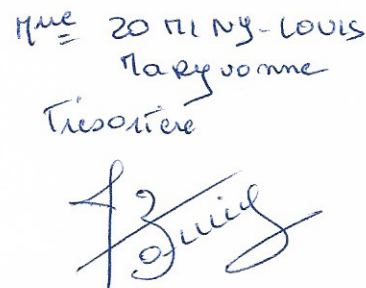 Mme ZOMINY-LOUIS
Maryvonne
Trésorière